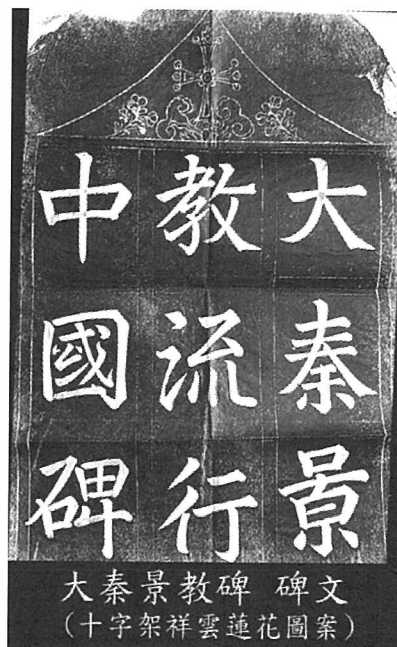 大秦景
教流行
中國碑
大秦景教碑 碑文
(十字架祥雲蓮花圖案)